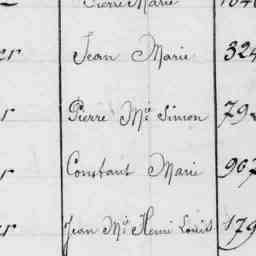 Pierre Marie
er Jean Marie 324
r Pierre Mie Simon 792
r Constant Marie 967
er Jean Mie Henri Louis 179